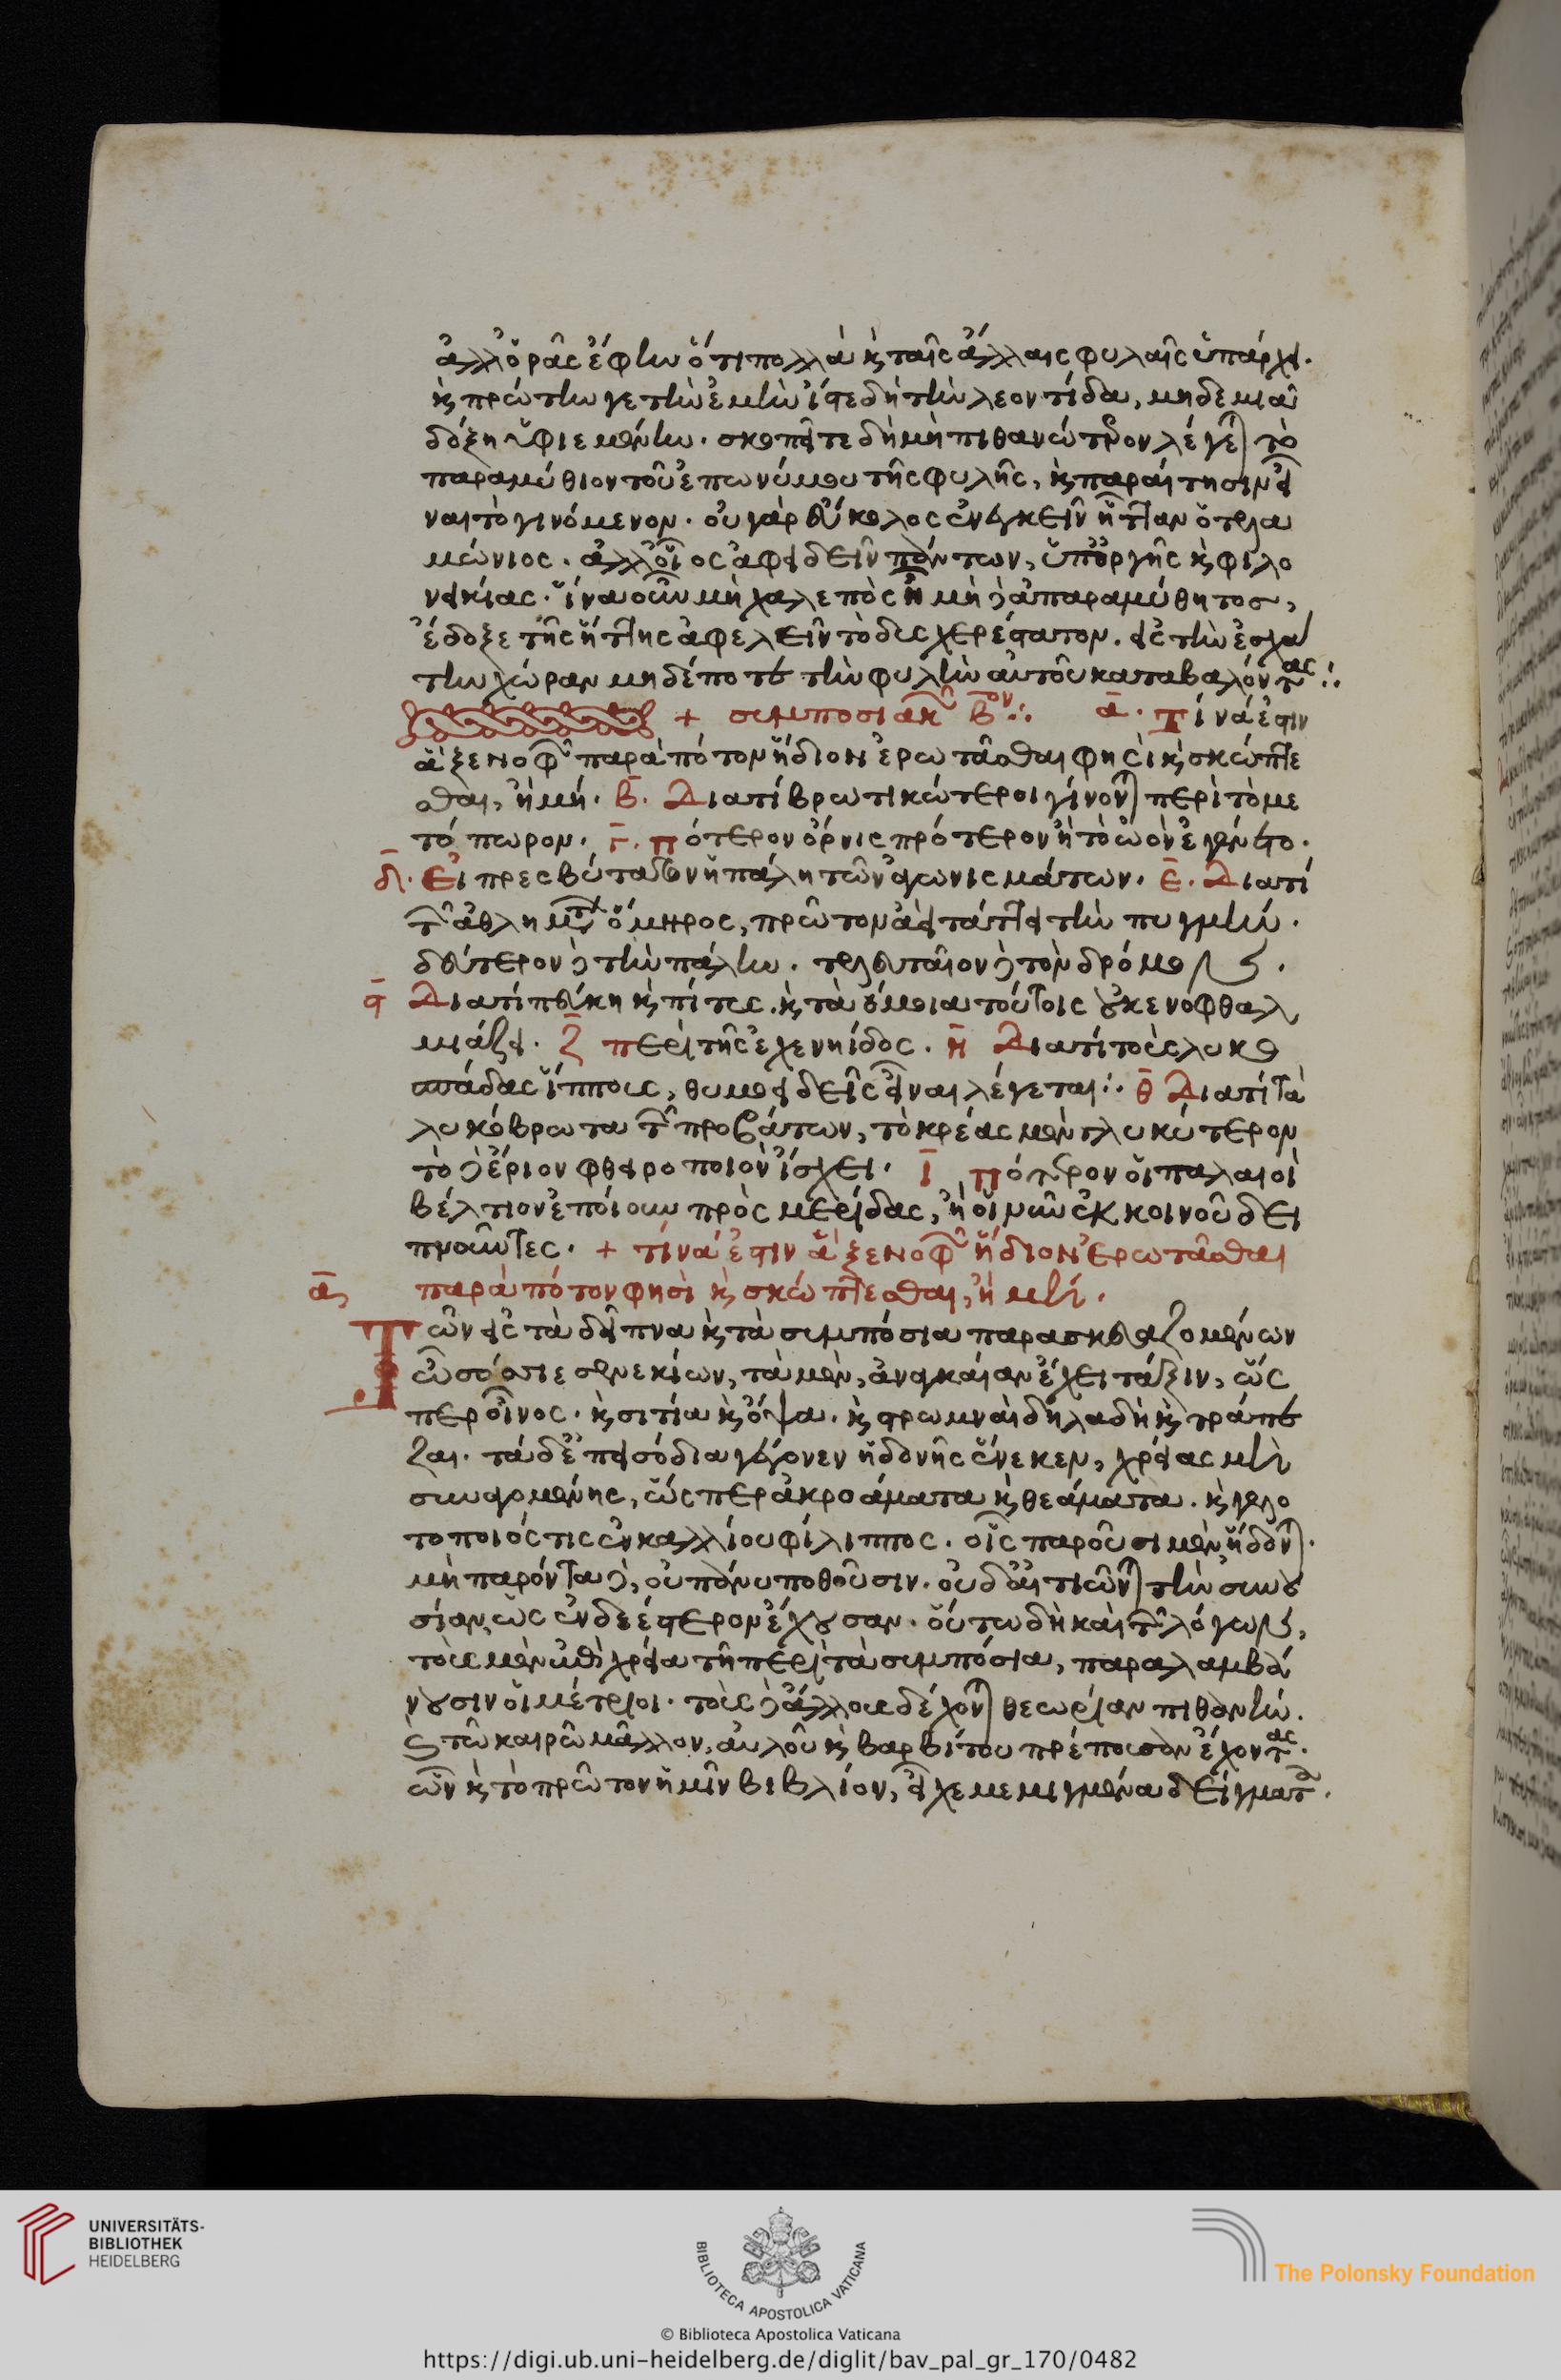 ἀλλ' ὁρᾶς ἔφην ὅτι πολλὰ κ ταῖς ἄλλαις φυλαῖς ὑπάρχει.
κ πρώτην γε τὴν ἐμὴν ἴστε δὴ τὴν λεοντίδα, μηδεμιᾶ
δόξη ὑφιεμένην. σκοπεῖτε δὴ μὴ πιθανώτερον λέγεται τὸ
παραμύθιον τοῦ ἐπωνύμου τῆς φυλῆς, κ παραίτησιν εἶ
ναι τὸ γινόμενον. οὐ γὰρ εὔκολος ἐνεγκεῖν ἧτταν ὁ τελα
μώνιος. ἀλλ' οἷος ἀφειδεῖν πάντων, ὑπ' ὀργῆς κ φιλο
νεικίας. ἵνα οὖν μὴ χαλεπὸς ἦ μὴ δὲ ἀπαραμύθητος,
ἔδοξε τῆς ἥττης ἀφελεῖν τὸ δυσχερέστατον. εἰς τὴν ἐσχά
την χώραν μηδέποτε τὴν φυλὴν αὐτοῦ καταβαλόντας:
+ συμποσιακῶν βον: ᾱ. Τίνά ἐστιν
ἃ ξενοφῶν παρὰ πότον ἥδιον ἐρωτᾶσθαι φησὶ κ σκώπτε
σθαι, ἢ μή. β. Διατί βρωτικώτεροι γίνονται περὶ τὸ με
τόπωρον. γ. πότερον ὄρνις πρότερον ἢ τὸ ὠὸν ἐγένετο.
δ. Εἰ πρεσβύτατον ἡ πάλη τῶν ἀγωνισμάτων. ε. Διατί
τῶν ἀθλημάτων ὅμηρος, πρῶτον ἀεὶ τάττει τὴν πυγμήν.
δεύτερον δὲ τὴν πάλην. τελευταῖον δὲ τὸν δρόμον.
ϛ Διατί πεύκη κ πίτυς. κ τὰ ὅμοια τούτοις οὐκ ἐνοφθαλ
μιάζει. ζ περὶ τῆς ἐχενηίδος. η Διατί τοὺς λυκο
σπάδας ἵππους, θυμοειδεῖς εἶναι λέγεται: θ Διατί τὰ
λυκόβρωτα τῶν προβάτων, τὸ κρέας μὲν γλυκύτερον
τὸ δὲ ἔριον φθειροποιὸν ἴσχει. ι πότερον οἱ παλαιοὶ
βέλτιον ἐποίουν πρὸς μερίδας, ἢ οἱ νῦν ἐκ κοινοῦ δει
πνοῦντες. + τίνά ἐστιν ἃ ξενοφῶν ἥδιον ἐρωτᾶσθαι
ᾱ παρὰ πότον φησὶ κ σκώπτεσθαι, ἢ μή.
Τῶν εἰς τὰ δεῖπνα κ τὰ συμπόσια παρασκευαζομένων
ὦ σόσσιε σενεκίων, τὰ μὲν, ἀναγκαίαν ἔχει τάξιν, ὥς
περ οἶνος. κ σιτία κ ὄψα. κ στρωμναὶ δηλαδὴ κ τράπε
ζαι. τὰ δ' ἐπεισόδια γέγονεν ἡδονῆς ἕνεκεν, χρείας μὴ
συναγομένης, ὥσπερ ἀκροάματα κ θεάματα. κ γελω
τοποιός τις ἐν καλλίου φίλιππος. οἷς παροῦσι μὲν ἥδονται.
μὴ παρόντα δὲ, οὐ πάνυ ποθοῦσιν. οὐδ' αἰτιῶνται τὴν συνου
σίαν, ὡς ἐνδεέστερον ἔχουσαν. οὕτω δὴ καὶ τῶν λόγων,
τοὺς μὲν ἐπὶ χρεία τῆ περὶ τὰ συμπόσια, παραλαμβά
νουσιν οἱ μέτριοι. τοὺς δὲ ἄλλους δέχονται θεωρίαν πιθανήν.
κ τῶ καιρῶ μᾶλλον, αὐλοῦ κ βαρβίτου πρέπουσαν ἔχοντας.
ὧν κ τὸ πρῶτον ἡμῖν βιβλίον, εἶχε μεμιγμένα δείγματα.
UNIVERSITÄTS-
BIBLIOTHEK
HEIDELBERG
BIBLIOTECA APOSTOLICA VATICANA
The Polonsky Foundation
© Biblioteca Apostolica Vaticana
https://digi.ub.uni-heidelberg.de/diglit/bav_pal_gr_170/0482